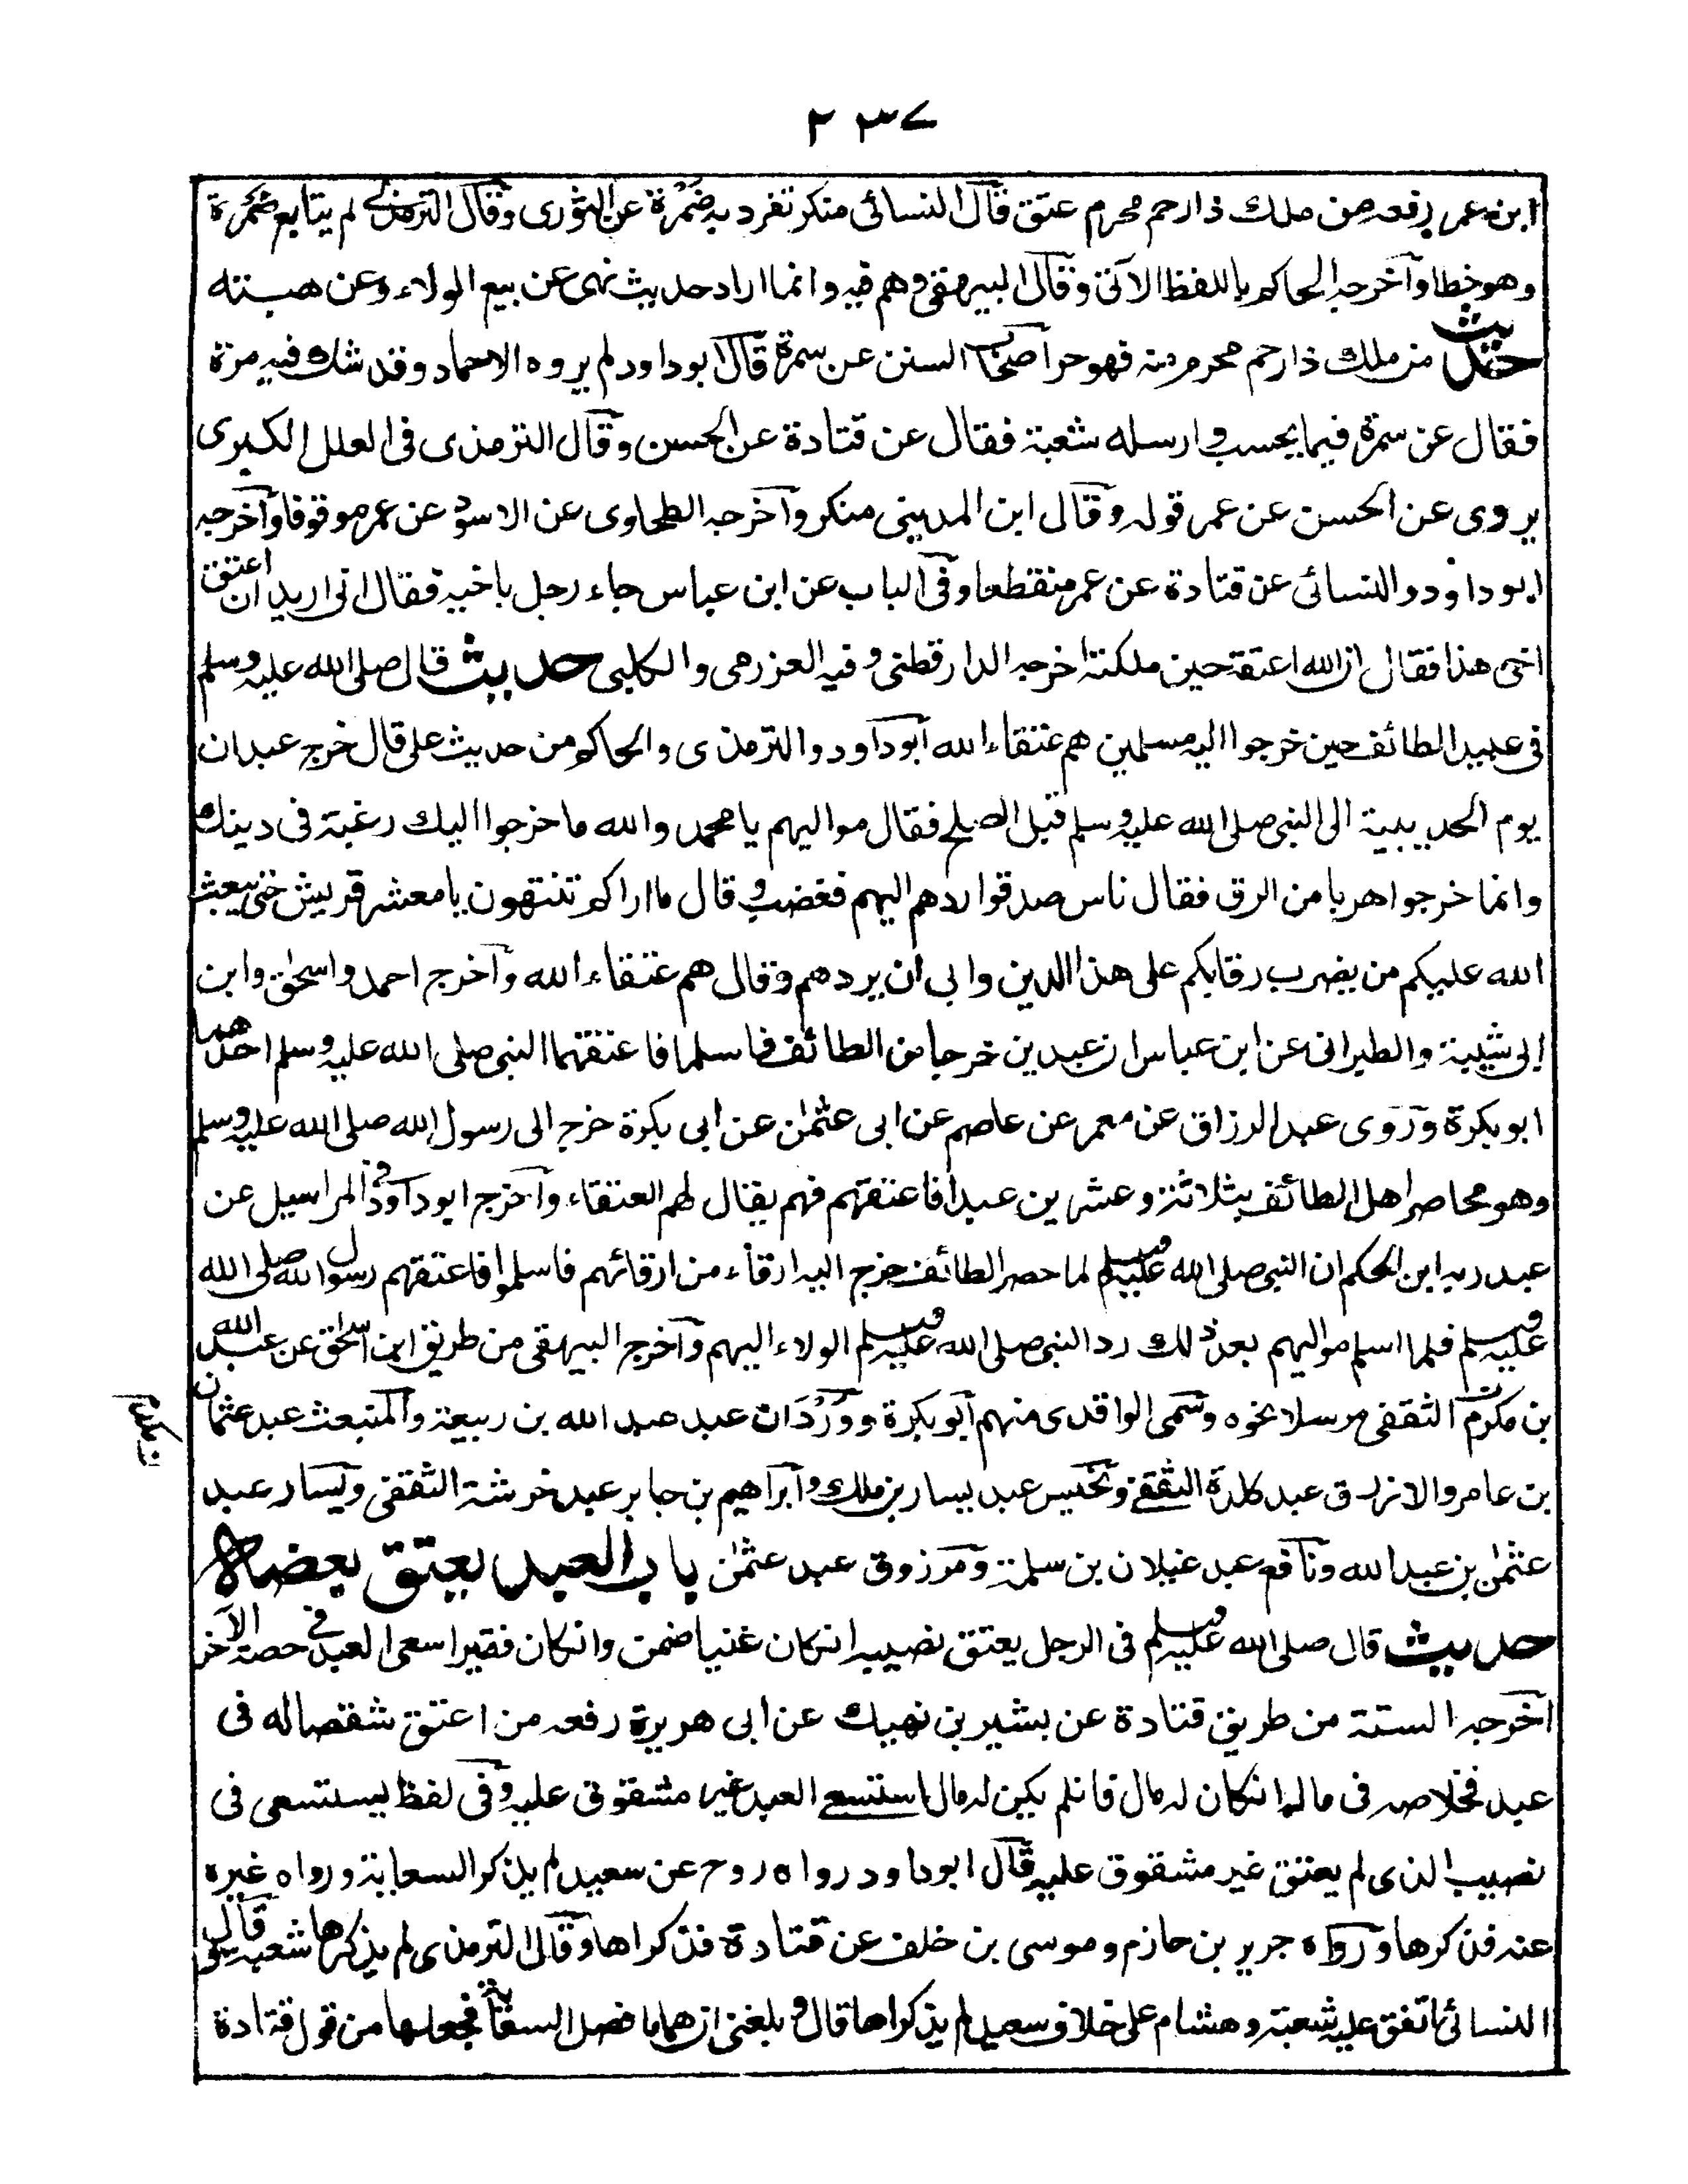 ٢٣٧
ابن عمر رفعه من ملك ذا رحم محرم عتق قال النسائى منكر تفرد به ضمرة عن الثورى وقال الترمذى لم يتابع ضمرة
وهو خطا وآخرجه الحاكم باللفظ الآتى وقال البيهقى وهم فيه وانما اراد حديث نهى عن بيع الولاء وعن هبته
حديث من ملك ذا رحم محرم منه فهو حر اصحاب السنن عن سمرة قال ابو داود لم يروه الاحماد وقد شك فيه مرة
فقال عن سمرة فيما يحسب وارسله شعبة فقال عن قتادة عن الحسن وقال الترمذى فى العلل الكبرى
يروى عن الحسن عن عمر قوله وقال ابن المدينى منكر وآخرجه الطحاوى عن الاسود عن عمر موقوفا وآخرجه
ابو داؤد والنسائى عن قتادة عن عمر منقطعا وفى الباب عن ابن عباس جاء رجل باخيه فقال انى اريد ان اعتق
اخى هذا فقال ان الله اعتقه حين ملكته اخرجه الدارقطنى وفيه العزرمى والكلبى حديث قال صلى الله عليه وسلم
فى عبيد الطائف حين خرجوا اليه مسلمين هم عتقاء الله ابو داود والترمذى والحاكم من حديث على قال خرج عبدان
يوم الحديبية الى النبى صلى الله عليه وسلم قبل الصلح فقال مواليهم يا محمد والله ما خرجوا اليك رغبة فى دينك
وانما خرجوا هربا من الرق فقال ناس صدقوا ردهم اليهم فغضب وقال ما اراكم تنتهون يا معشر قريش حتى يبعث
الله عليكم من يضرب رقابكم على هذا الدين وابى ان يردهم وقال هم عتقاء الله وآخرج احمد واسحٰق وابن
ابى شيبة والطبرانى عن ابن عباس ان عبدين خرجا من الطائف فاسلما فاعتقهما النبى صلى الله عليه وسلم احدهما
ابو بكرة وروى عبد الرزاق عن معمر عن عاصم عن ابى عثمٰن عن ابى بكرة خرج الى رسول الله صلى الله عليه وسلم
وهو محاصر اهل الطائف بثلاثة وعشرين عبدا فاعتقهم فهم يقال لهم العتقاء وآخرج ابو داود فى المراسيل عن
عبد ربه ابن الحكم ان النبى صلى الله عليه وسلم لما حصر الطائف خرج اليه ارقاء من ارقائهم فاسلموا فاعتقهم رسول الله صلى الله
عليه وسلم فلما اسلم مواليهم بعد ذلك رد النبى صلى الله عليه وسلم الولاء اليهم وآخرج البيهقى من طريق ابن اسحٰق عن عبد الله
بن مكرم الثقفى مرسلا نحوه وسمى الواقدى منهم ابو بكرة ووَرْدَان عبد عبد الله بن ربيعة والمنبعث عبد عثمان
بن عامر والازرق عبد كلدة الثقفى ويحنس عبد يسار بن ملك وابراهيم بن جابر عبد خرشة الثقفى ويسار عبد
عثمٰن بن عبد الله ونافع عبد غيلان بن سلمة ومرزوق عبد عثمٰن باب العبد يعتق بعضه
حديث قال صلى الله عليه وسلم فى الرجل يعتق نصيبه انكان غنيا ضمن وانكان فقيرا سعى العبد فى حصة الآخر
اخرجه الستة من طريق قتادة عن بشير بن نهيك عن ابى هريرة رفعه من اعتق شقصاله فى
عبد فخلاصه فى ماله انكان له مال فانلم يكن له مال استسعى العبد غير مشقوق عليه وفى لفظ يستسعى فى
نصيب الذى لم يعتق غير مشقوق عليه قال ابو داود رواه روح عن سعيد لم يذكر السعاية ورواه غيره
عنه فذكرها ورواه جرير بن حازم وموسى بن خلف عن قتادة فذكراها وقال الترمذى لم يذكرها شعبة قال
النسائى اتفق عليه شعبة وهشام على خلاف سعيد لم يذكراها قال وبلغنى ان هماما فصل السعاية فجعلها من قول قتادة